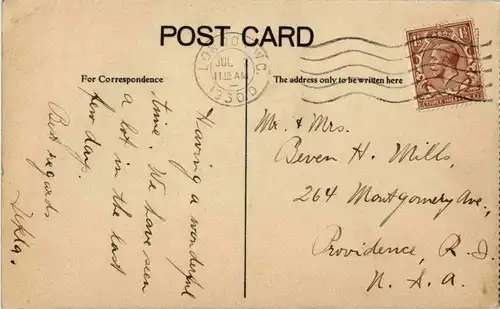 POST CARD
For Correspondence
The address only to be written here
LONDON. W.C.
JUL
11 15 AM
1930
Having a wonderful
time. We have seen
a lot in the last
few days.
Best regards
Mr. & Mrs.
Beven H. Mills,
264 Montgomery Ave.,
Providence, R. I.
U. S. A.